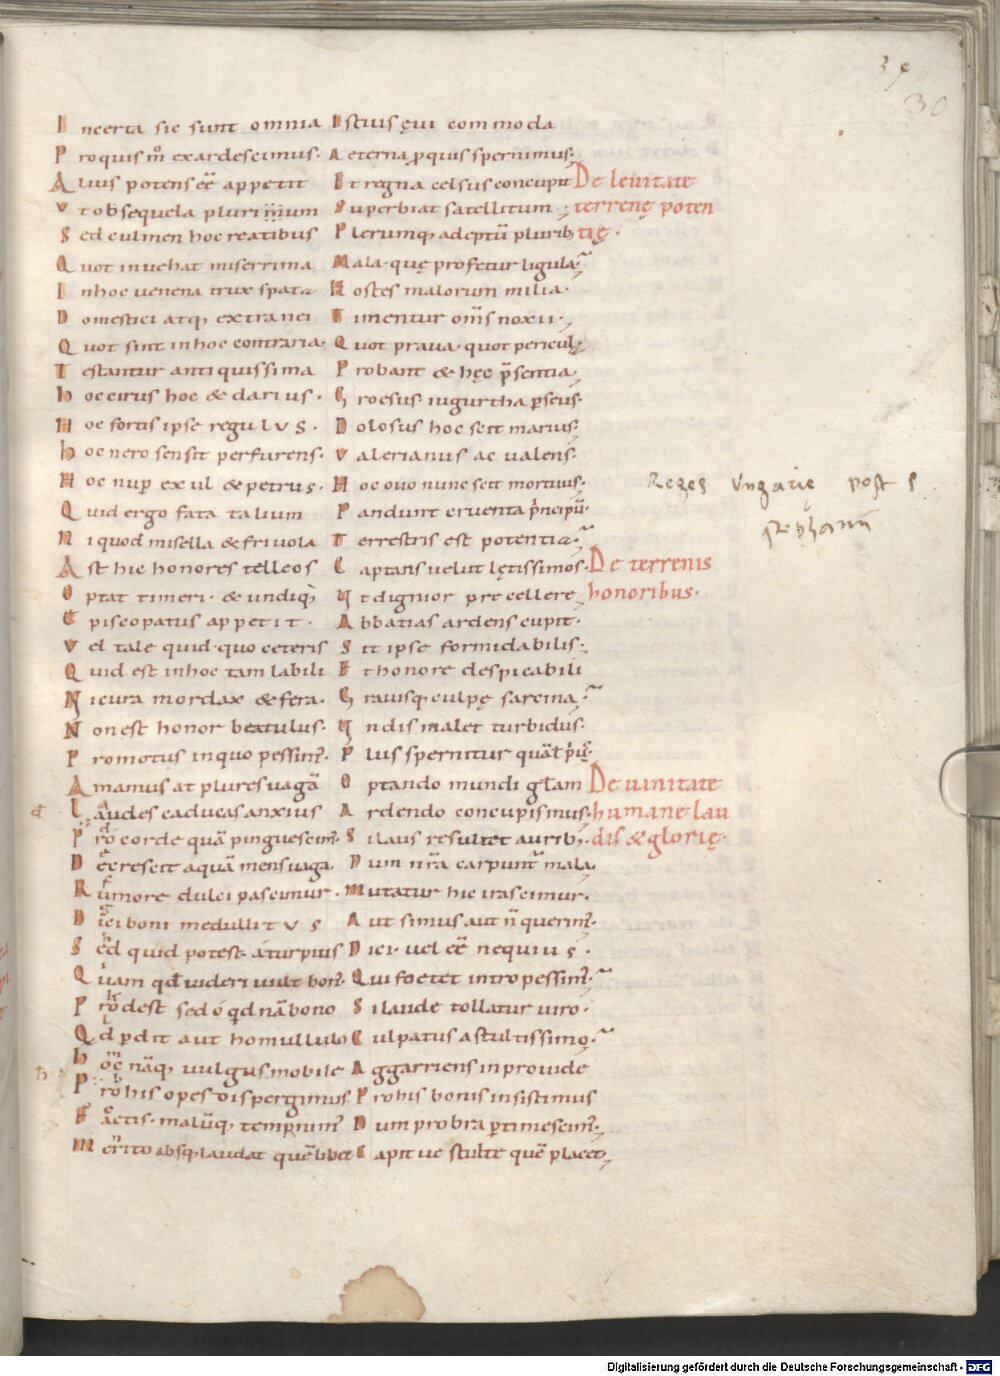 30
Incerta sic sunt omnia Istius ęui commoda
Pro quis m̊ exardescimus· Aeterna ꝓ quis spernimus·
Alius potens eē appetit Et regna celsus concupit De leuitate
Vt obsequela plurimum Superbiat satellitum· terrenę poten
Sed culmen hoc reatibus Plerumq; adeptū plurib; tię·
Quot inuehat miserrima Mala· quę profetur ligula·
In hoc uenena trux spata Hostes malorum milia·
Domestici atq; extranei Timentur om̄s noxii·
Quot sint in hoc contraria· Quot praua· quot pericula·
Testantur antiquissima Probant & hęc p̄sentia·
Hoc cirus hoc & darius· Croesus· iugurtha ꝑseus·
Hoc fortis ipse regulus· Dolosus hoc scit marius·
Hoc nero sensit perfurens· Valerianus ac ualens·
Hoc nuꝑ exul & petrus· Hoc ouo nunc scit mortuus·
Quid ergo fata talium Pandunt cruenta p̄ncipū·
Ni quod misella & friuola Terrestris est potentia·
Ast hic honores telleos Captans uelut lętissimos· De terrenis
Optat timeri· & undiq; Vt dignior precellere honoribus·
Episcopatus appetit· Abbatias ardens cupit·
Vel tale quid· quo ceteris Sit ipse formidabilis·
Quid est in hoc tam labili Et honore despicabili
Ni cura mordax & fera· Grauisq; culpę sarcina·
Non est honor beatulus· Vndis malet turbidus·
Promotus in quo pessim᷒· Plus spernitur quā
Amamus at plures uagā Optando mundi gl̄am De uanitate
Laudes caducas anxius Ardendo concupiscimus· humane lau
Pro corde quā pinguescim᷒· Si laus resultet aurib;· dis & glorię·
Decrescit aquā mens uaga Dum nr̄a carpunt᷒ mala·
Rumore dulci pascimur· Mutatur hic irascimur·
Dici boni medullitus Aut simus aut n̄ querim᷒·
Sed quid potest· aturpius Dici· uel eē nequius·
Quam qđ uideri uult bon᷒· Qui foetet intro pessim᷒·
Prodest sed ó qđ nā bono Si laude tollatur uiro·
Qđ ꝑdit aut homullulo Culpatus a stultissimo·
Hoc nāq; uulgus mobile Aggarriens inprouide
Pro his opes dispergimus Pro his bonis insistimus
Factis· malūq; Dum probra ꝑtimescim᷒·
Merito absq; laudat quēlibet Capit ue stulte quē placet·
Reges Vngarię post s
stephanū
Digitalisierung gefördert durch die Deutsche Forschungsgemeinschaft - DFG